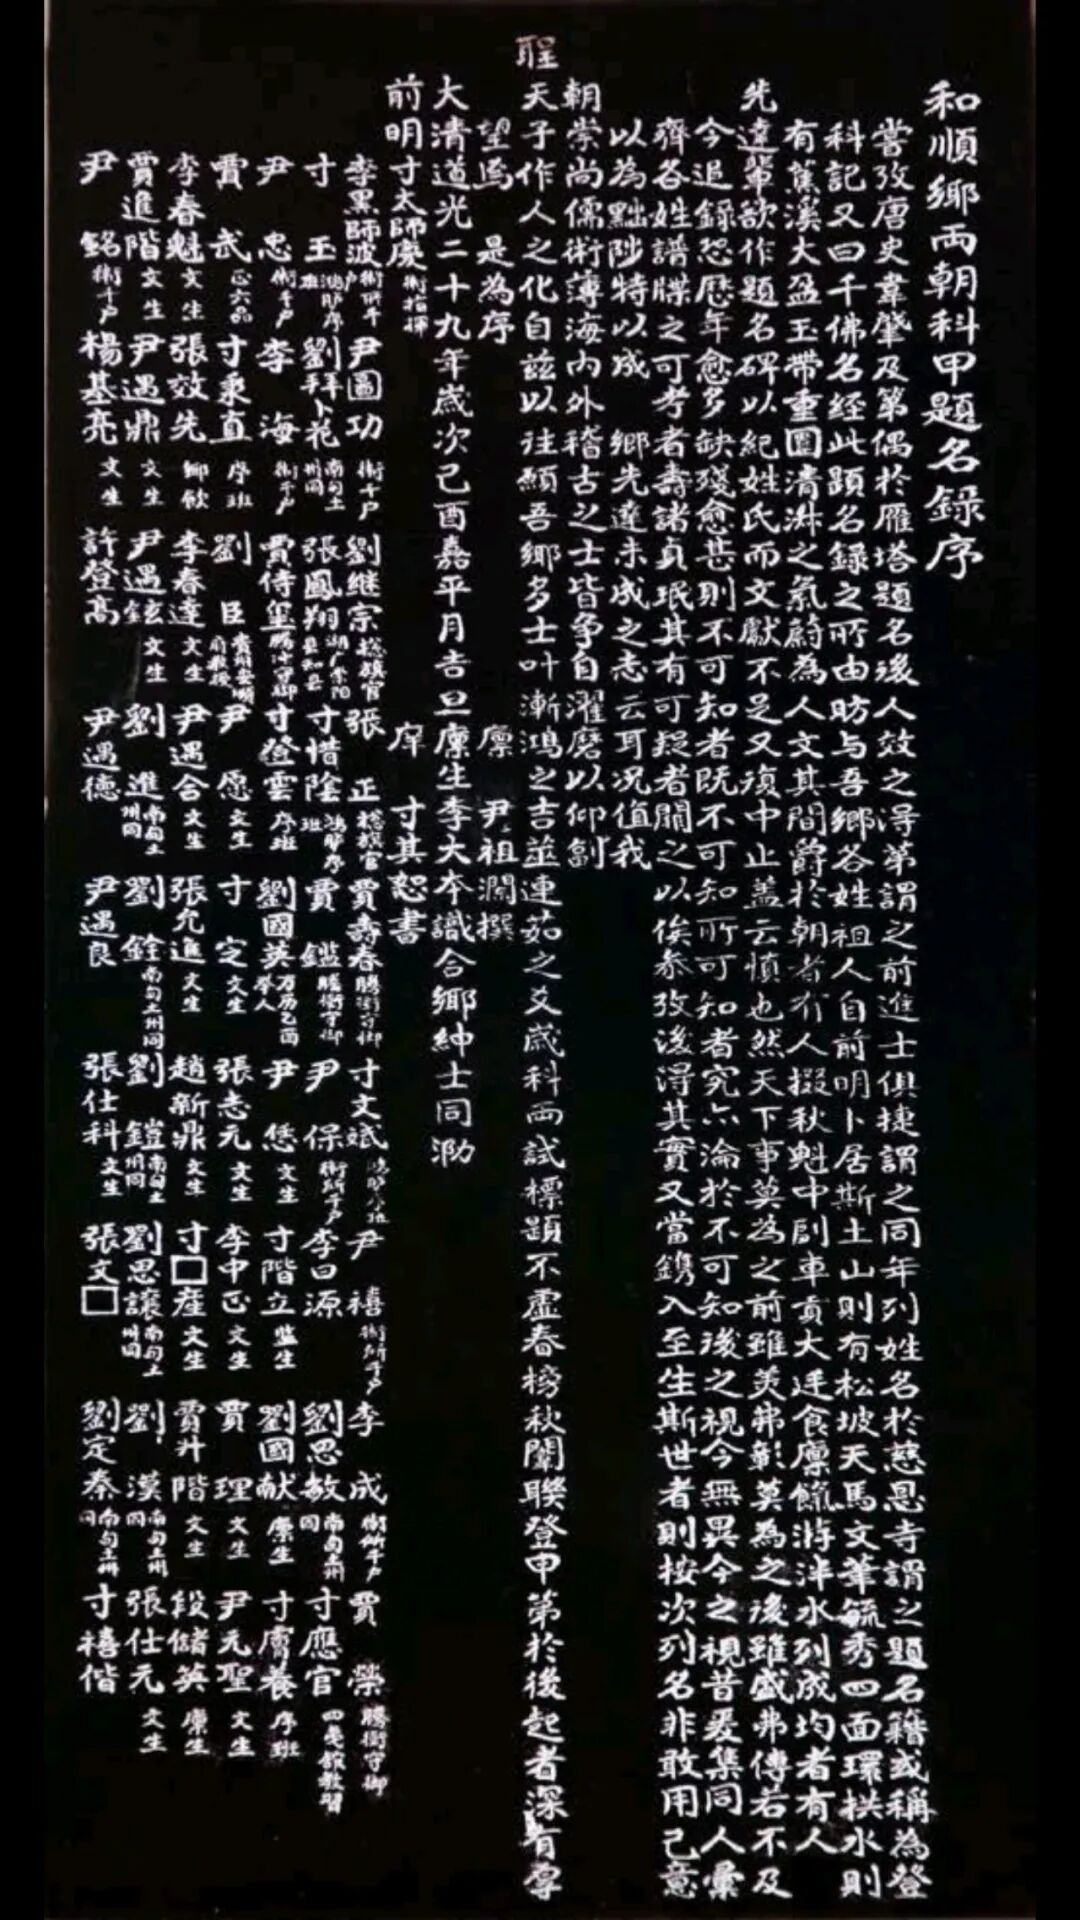 和順鄉兩朝科甲題名錄序
嘗攷唐史韋肇及第偶於雁塔題名後人效之淂第謂之前進士俱捷謂之同年列姓名於慈恩寺謂之題名籍或稱為登
科記又曰千佛名經此題名錄之所由昉与吾鄉各姓祖人自前明卜居斯土山則有松坡天馬文筆毓秀四面環拱水則
有蕉溪大盈玉帶重圍清淑之氣蔚為人文其間爵於朝者有人掇秋魁中副車貢大廷食廩餼游泮水列成均者有人
先達輩欲作題名碑以紀姓氏而文獻不足又復中止蓋云慎也然天下事莫為之前雖美弗彰莫為之後雖盛弗傳若不及
今追錄恐歷年愈多缺殘愈甚則不可知者既不可知所可知者究亦淪於不可知後之視今無異今之視昔爰集同人彙
齊各姓譜牒之可考者壽諸貞珉其有可疑者闕之以俟叅攷後淂其實又當鐫入至生斯世者則按次列名非敢用己意
以為黜陟特以成 鄉先達未成之志云耳况值我
朝崇尚儒術薄海內外稽古之士皆争自濯磨以仰副
聖天子作人之化自兹以往願吾鄉多士叶漸鴻之吉並連茹之爻歲科兩試標題不虛春榜秋闈聯登甲第於後起者深有厚
望焉 是為序 廪 尹祖瀾撰
大清道光二十九年歲次己酉嘉平月吉旦廪生李大本識合鄉紳士同泐
庠 寸其恕書
前明寸太師慶衛指揮
李黑師波衛所千户 尹圖功衛千户 劉継宗総旗官 張正総旗官 賈壽春騰衝守御 寸文斌鴻臚序班 尹禧衛所千户 李成衛所千户 賈榮騰衝守御
寸玉鴻臚序班 劉拜卜花南甸土州同 張鳳翔湖广崇阳县知县 寸惜陰鴻臚序班 賈鑑騰衝守御 尹保衛所千户 李曰源 劉思敏南甸土州同 寸應官四夷館教習
尹忠衛千户 李海衛千户 賈侍璽騰冲守御 寸登雲序班 劉國英万历乙酉举人 尹恁文生 寸階立监生 劉國献廪生 寸膺養序班
賈武正六品 寸秉直序班 劉臣 尹愿文生 寸定文生 張志元文生 李中正文生 賈理文生 尹元聖文生
李春魁文生 張效先鄉飲 李春達文生 尹遇合文生 張允進文生 趙新鼎文生 寸□產文生 賈升階文生 段儲英廪生
賈進階文生 尹遇鼎文生 尹遇鉉文生 劉進南甸土州同 劉銓南甸土州同 劉鎧南甸土州同 劉思讓南甸土州同 劉漢南甸土州同 張仕元文生
尹銘衛千户 楊基亮文生 許登高 尹遇德 尹遇良 張仕科文生 張文□ 劉定秦南甸土州同 寸禧偕